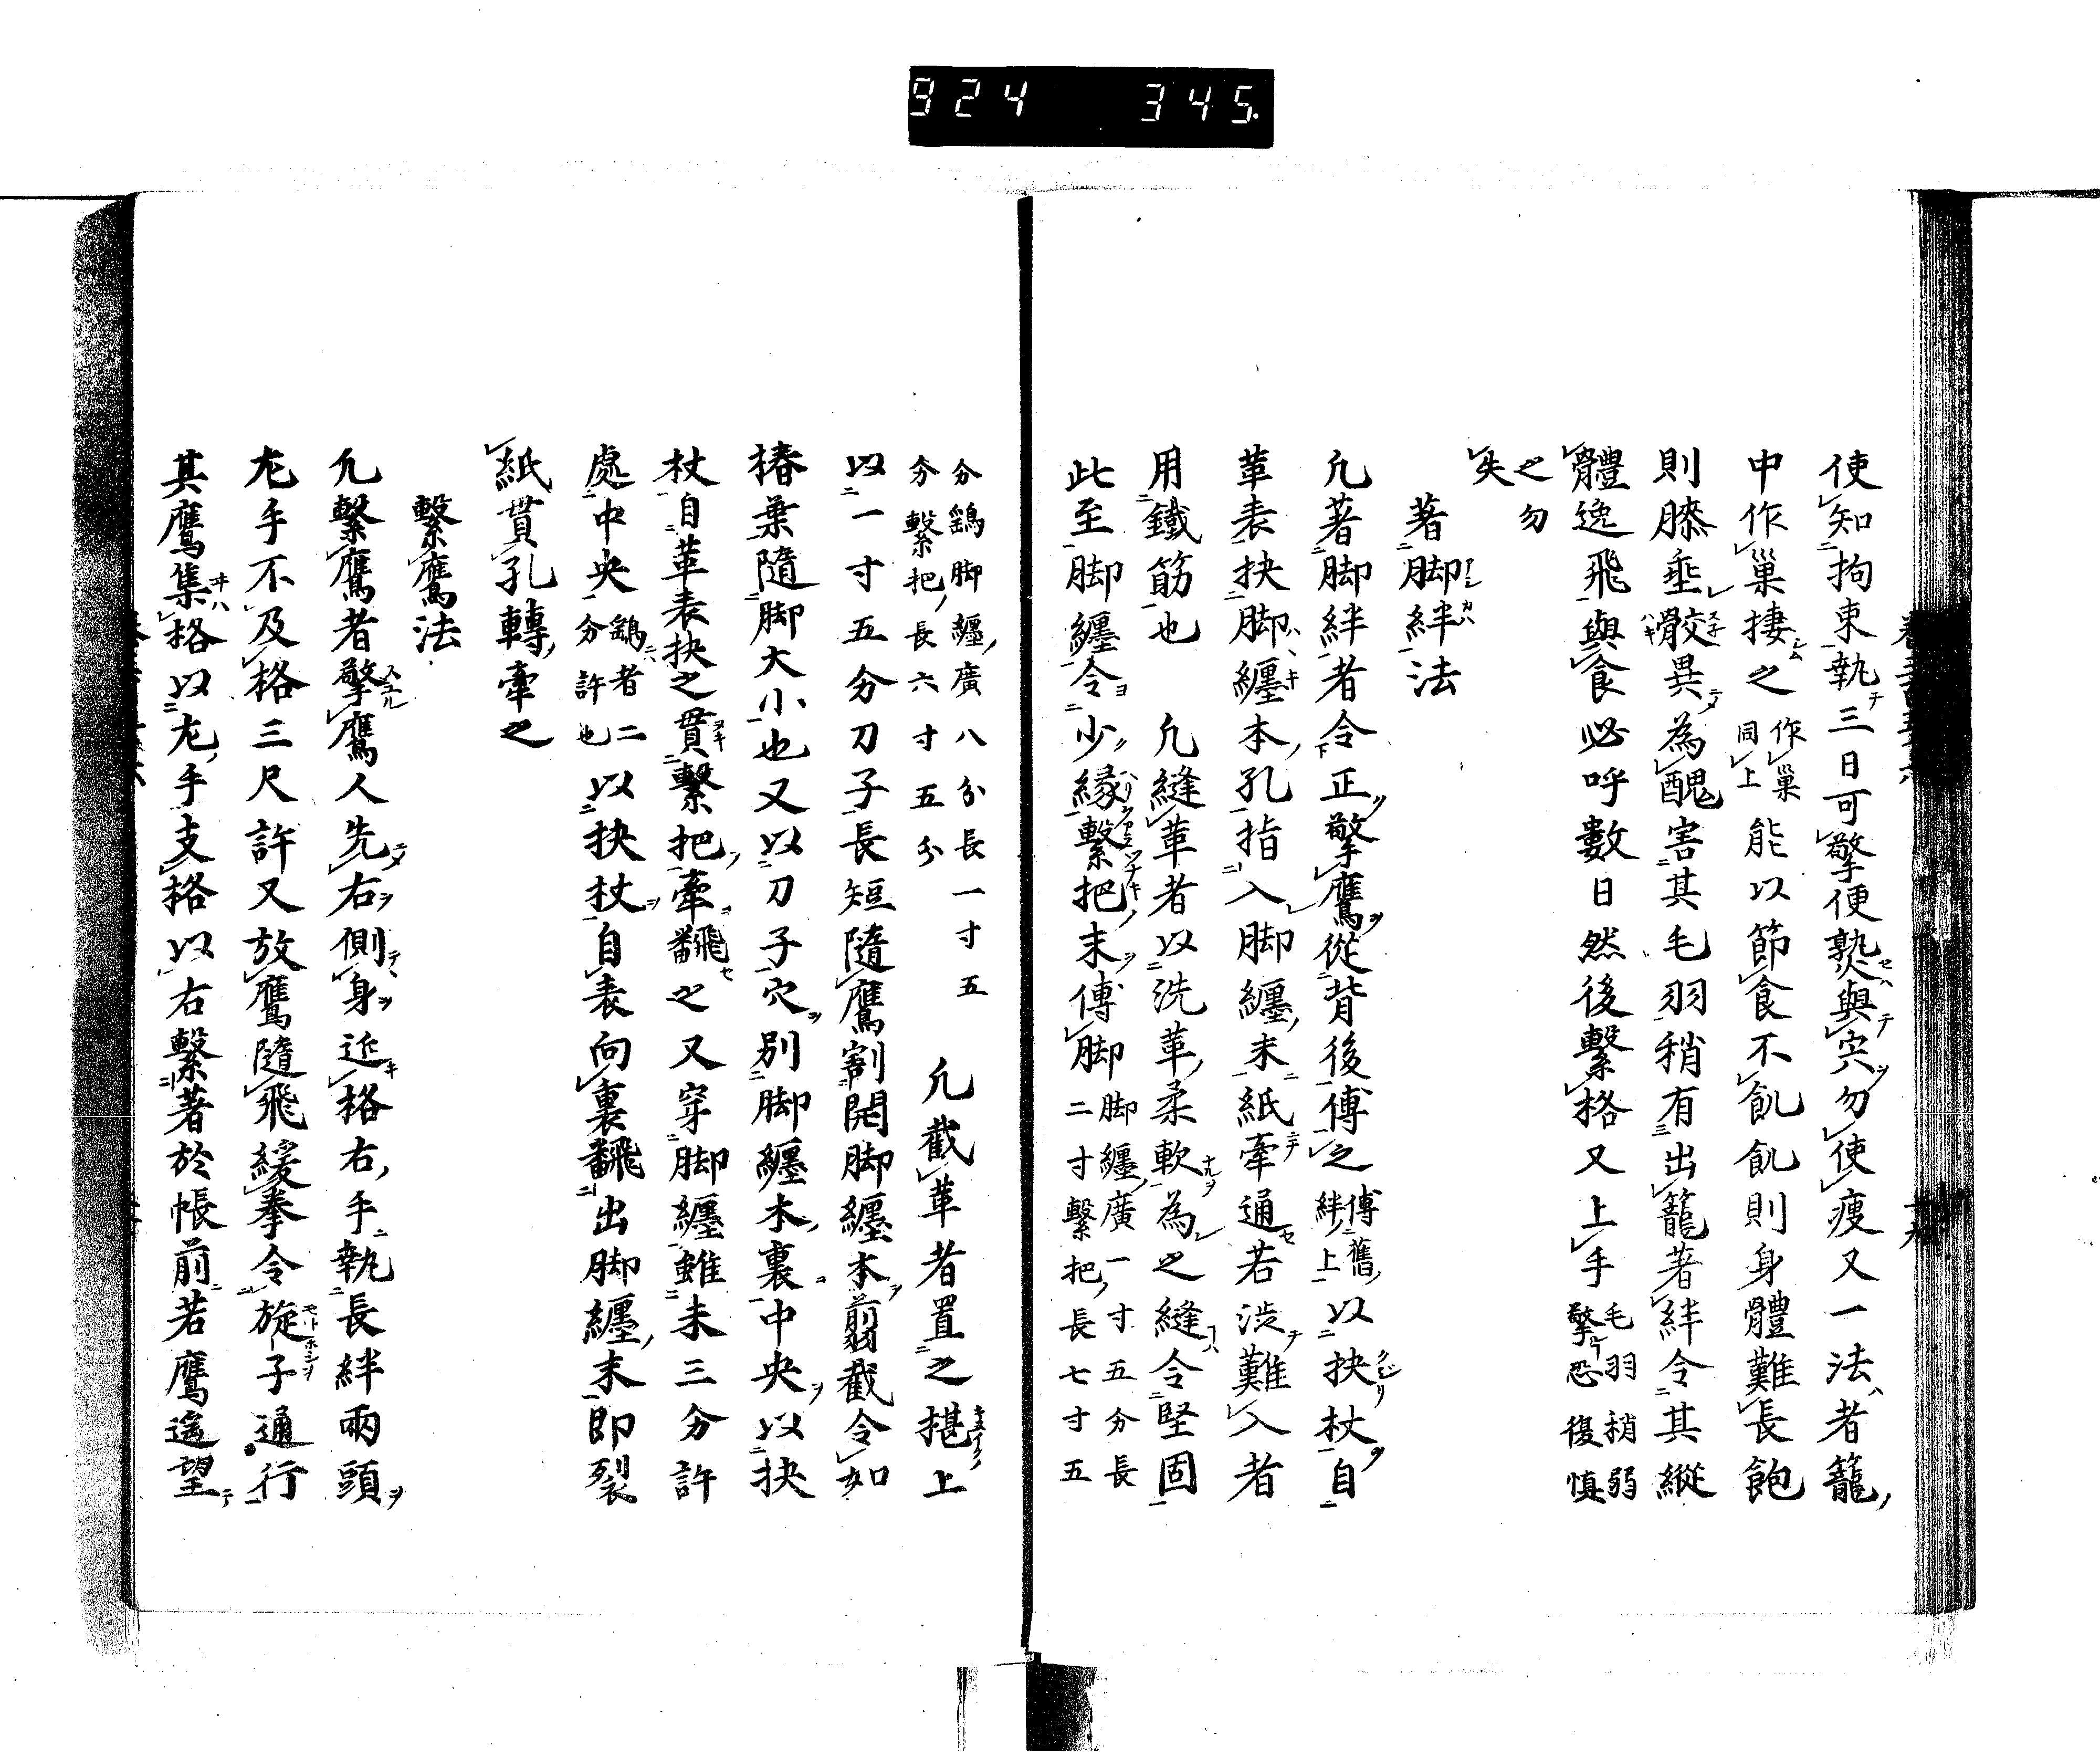 924 345.
使知拘束執三日可擎便熟與宍勿使痩又一法者籠
中作巢捿之作巢同上能以節食不飢飢則身體難長飽
則膝垂骹異為醜害其毛羽稍有出籠著絆令其縱
體逸飛與食必呼數日然後繫格又上手毛羽稍弱擎恐復慎
之勿失
著脚絆法
凢著脚絆者令正擎鷹從背後傅之傅舊絆上以抉杖自
革表抉脚纏本孔指入脚纏末紙牽通若澁難入者
用鐵筋也 凢縫革者以洗革柔軟為之縫令堅固
此至脚纏令少縁繫把末傅脚脚纏廣一寸五分長二寸繫把長七寸五
分鷂脚纏廣八分長一寸五分繫把長六寸五分 凢截革者置之椹上
以一寸五分刀子長短隨鷹割開脚纏本翦截令如
椿葉隨脚大小也又以刀子穴別脚纏木裏中央以抉
杖自革表抉之貫繫把牽飜之又穿脚纏雖未三分許
處中央鷂者二分許也以抉杖自表向裏飜出脚纏末即裂
紙貫孔轉牽之
繫鷹法
凢繫鷹者擎鷹人先右側身近格右手執長絆兩頭
左手不及格三尺許又放鷹隨飛緩拳令旋子通行
其鷹集格以左手支格以右繫著於帳前若鷹遥望